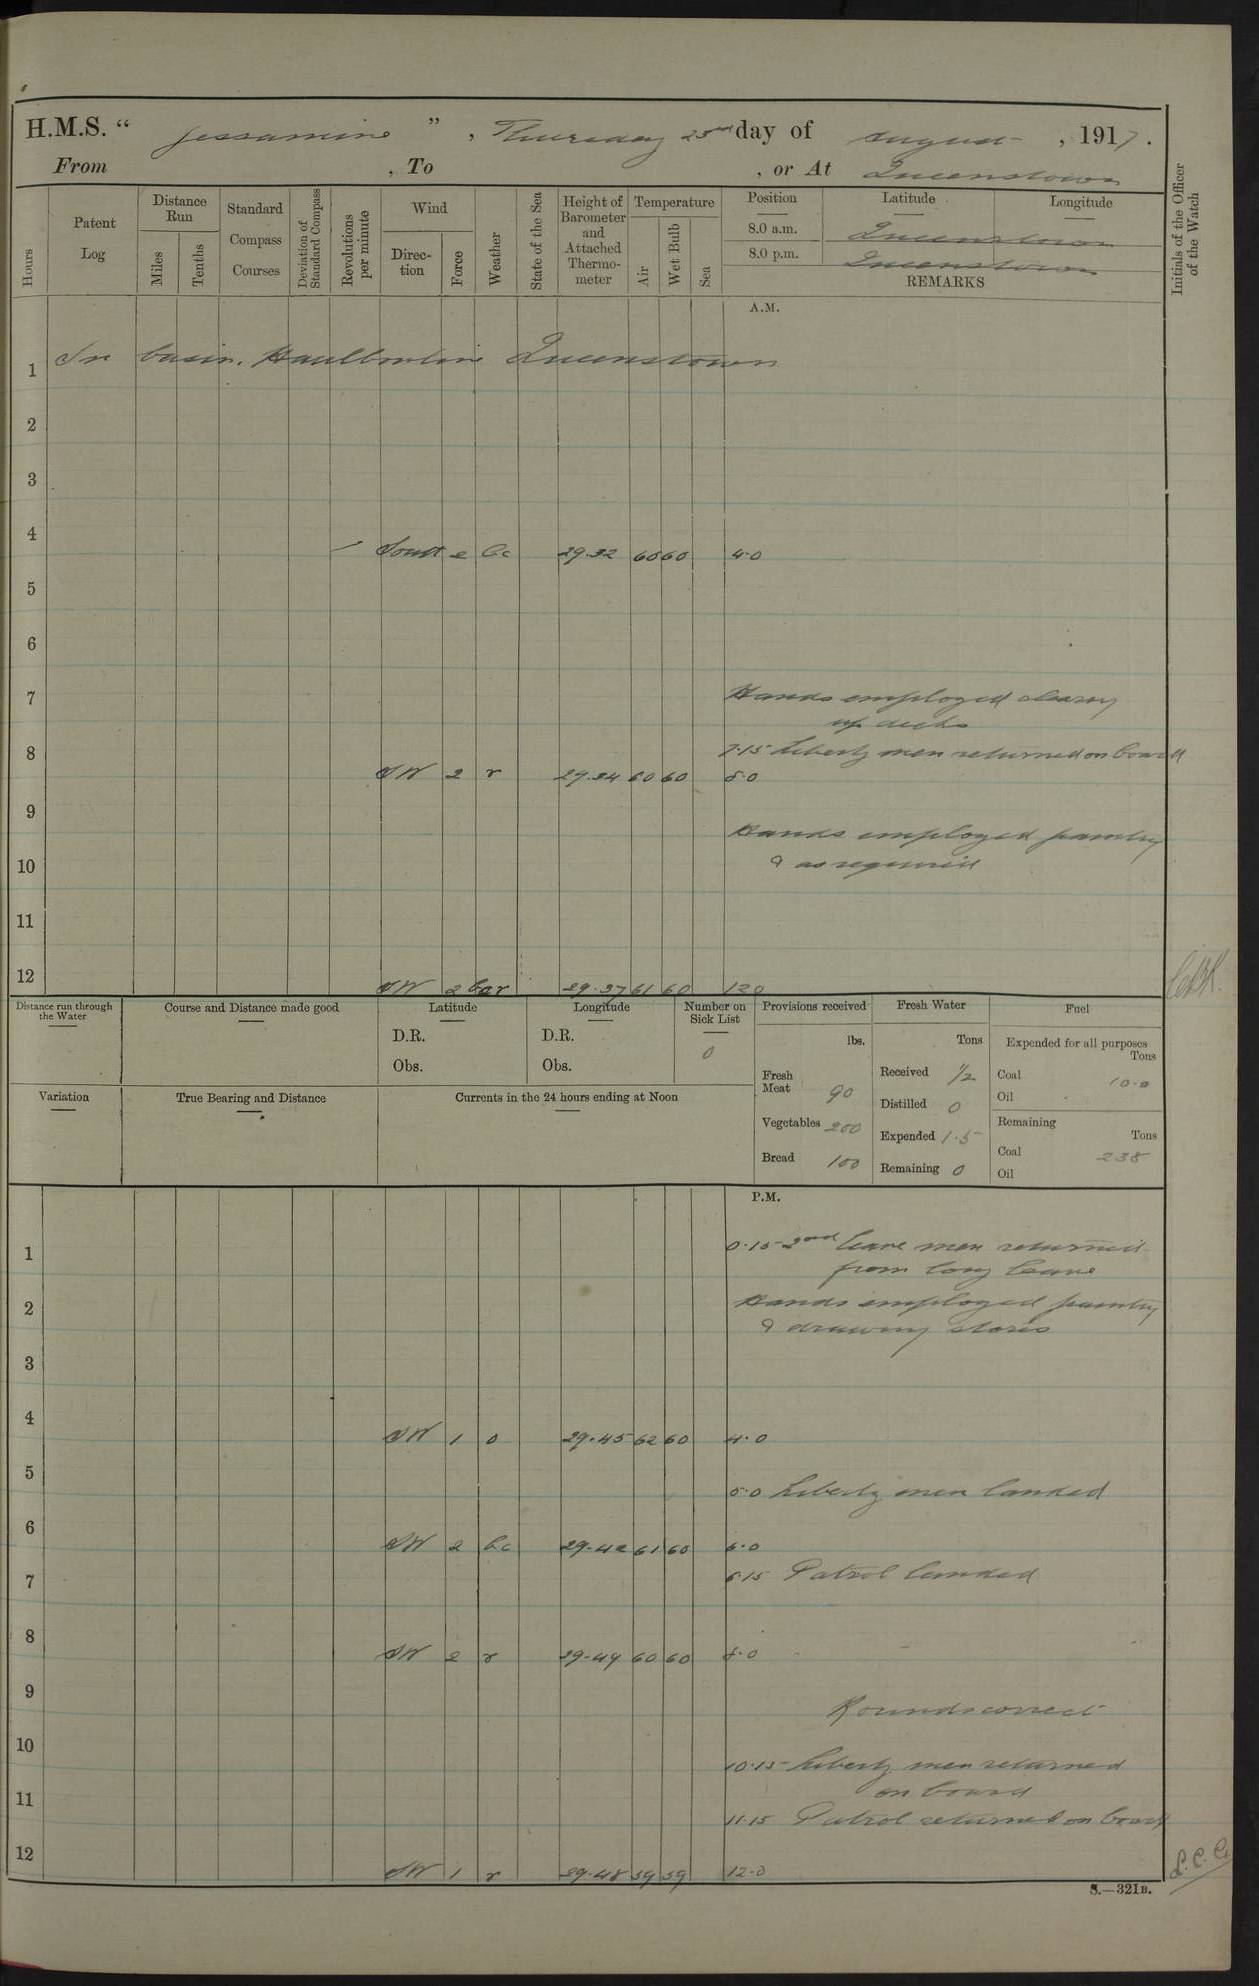 H.M.S. " Jessamine ", Thursday 23rd day of August, 1917.
From , To , or At Queenstown
Hours
Patent Log
Distance Run
Miles
Tenths
Standard Compass Courses
Deviation of Standard Compass
Revolutions per minute
Wind
Direction
Force
Weather
State of the Sea
Height of Barometer and Attached Thermometer
Temperature
Air
Wet Bulb
Sea
Position Latitude Longitude
8.0 a.m. Queenstown
8.0 p.m. Queenstown
REMARKS
Initials of the Officer of the Watch
A.M.
1 In basin. Haulbowline Queenstown
2
3
4 South 2 bc 29.32 60 60 4.0
5
6
7 Hands employed clearing
up decks
8 7.15 Liberty men returned on board
SW 2 r 29.34 60 60 8.0
9 Hands employed painting
10 & as required
11
12 SW 2 bcr 29.37 61 60 12.0
Distance run through the Water
Course and Distance made good
Latitude
D.R.
Obs.
Longitude
D.R.
Obs.
Number on Sick List
0
Provisions received
lbs.
Fresh Meat 90
Vegetables 200
Bread 100
Fresh Water
Tons
Received 1/2
Distilled 0
Expended 1.5
Remaining 0
Fuel
Expended for all purposes
Tons
Coal 10.0
Oil
Remaining
Tons
Coal 238
Oil
Variation
True Bearing and Distance
Currents in the 24 hours ending at Noon
P.M.
1 0.15 2nd leave men returned
from long leave
2 Hands employed painting
& drawing stores
3
4 SW 1 o 29.45 62 60 4.0
5 5.0 Liberty men landed
6 SW 2 bc 29.42 61 60 6.0
7 6.15 Patrol landed
8 SW 2 r 29.49 60 60 8.0
9 Rounds correct
10 10.15 Liberty men returned
11 on board
11.15 Patrol returned on board
12 SW 1 r 29.48 59 59 12.0
L.C.C.
S.—321B.